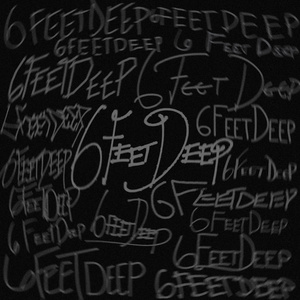 6FEETDEEP 6FEETDEEP
6FEETDEEP 6 FEET DEEP
6FEETDEEP 6FEET DEEP
6FEETDEEP 6FEETDEEP
6FEET DEEP
6FEETDEEP 6FEETDEEP
6FEETDEEP 6FEETDEEP
6FEETDEEP 6FEETDEEP
6 FEETDEEP 6FEETDEEP
6FEETDEEP 6FEETDEEP